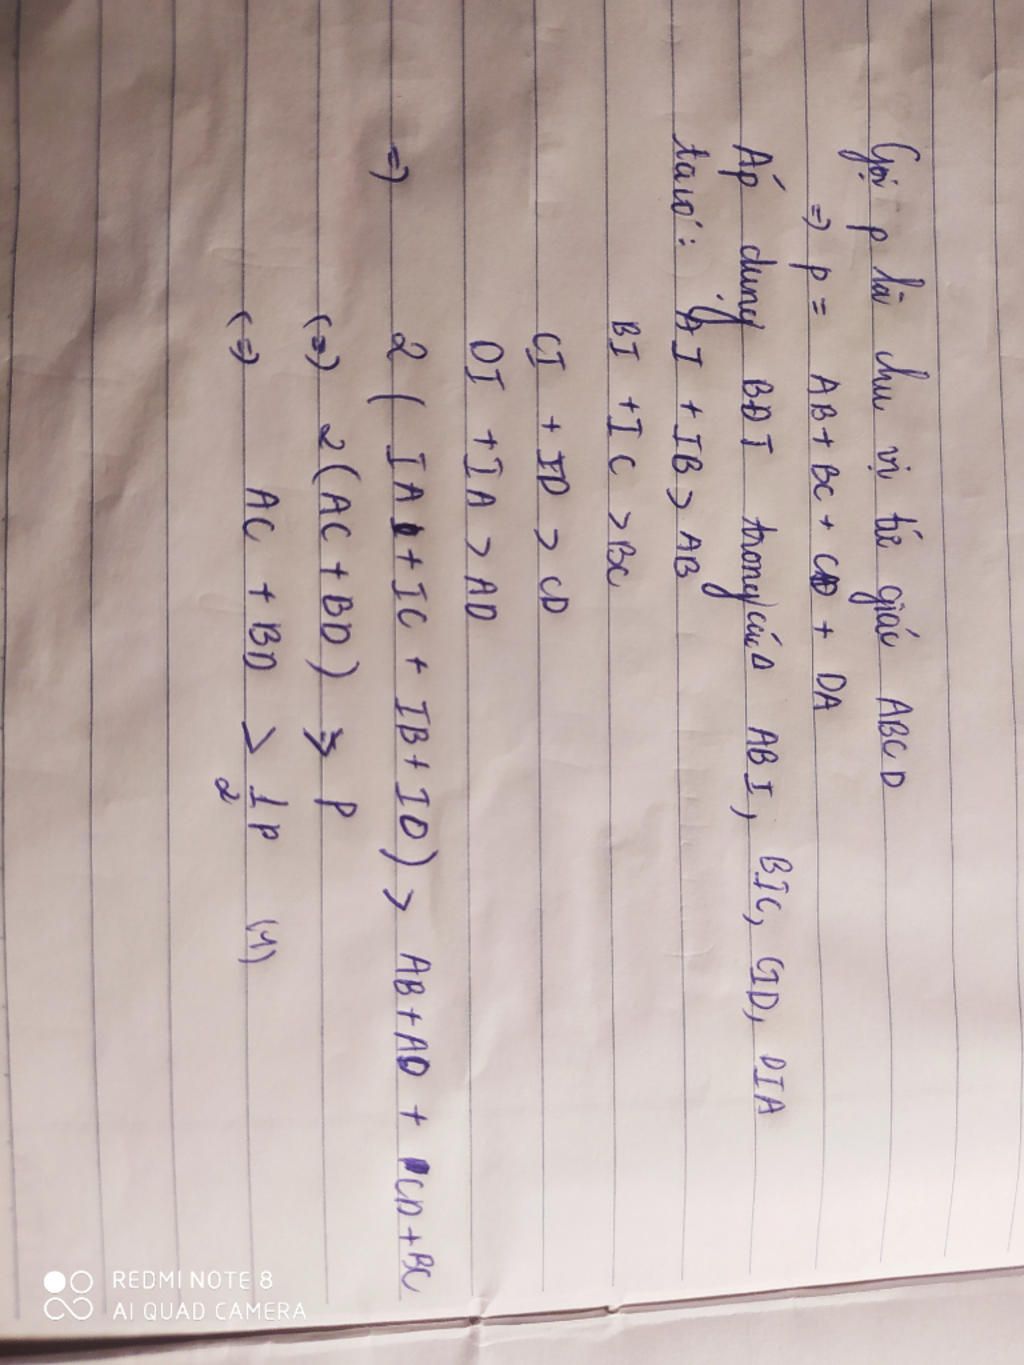 Gọi p là chu vi tứ giác ABCD
=> p = AB + BC + CD + DA
Áp dụng BĐT trong các Δ ABI, BIC, CID, DIA
ta có: AI + IB > AB
BI + IC > BC
CI + ID > CD
DI + IA > AD
=> 2 ( IA + IC + IB + ID) > AB + AD + CD + BC
(=) 2(AC + BD) > p
(=) AC + BD > 1/2 p (1)
REDMI NOTE 8
AI QUAD CAMERA